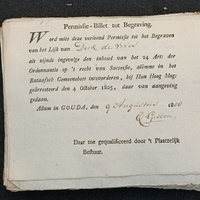 Permissie-Billet tot Begraving.
Word mits deze verleend Permissie tot het Begraven
van het Lijk van Dirk de Vries
als zijnde ingevolge den inhoud van het 24 Art: der
Ordonnantie op 't recht van Successie, alömme in het
Bataafsch Gemeenebest intevorderen, bij Hun Hoog Mog:
gearresteerd den 4 October 1805, daar van aangeving
gedaan.
Actum in GOUDA, den 9 Augustus 180
Daar toe gequalificeerd door 't Plaatselijk
Bestuur.